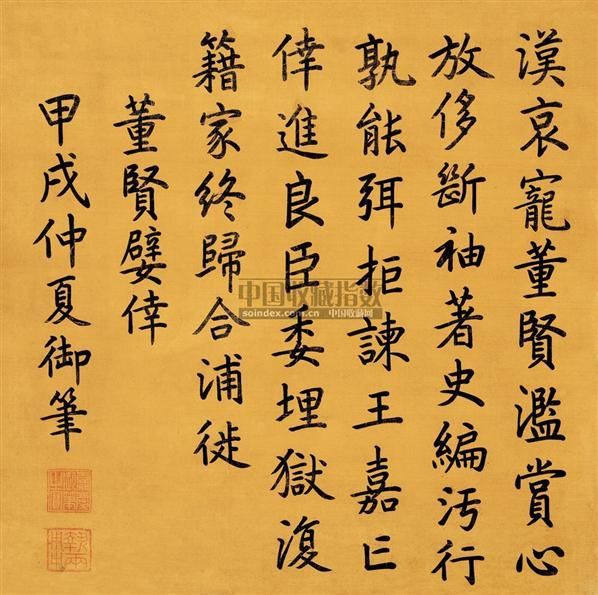 漢哀寵董賢濫賞心
放侈斷袖著史編汚行
孰能弭拒諫王嘉亡
倖進良臣委埋獄復
籍家終歸合浦徙
董賢嬖倖
甲戌仲夏御筆
執兩用中
中国收藏指数
soindex.com.cn 中国收藏网